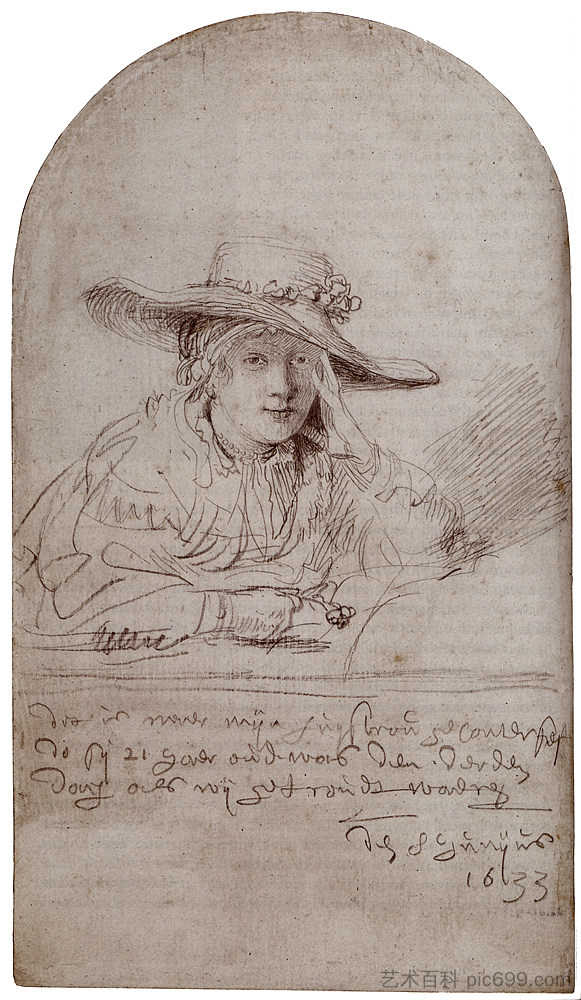 dit is naer mijn huysvrou geconterfeyt
do sij 21 jaer oud was den derden
dach als wij getroudt waeren
den 8 junijus
1633
艺术百科 pic699.com